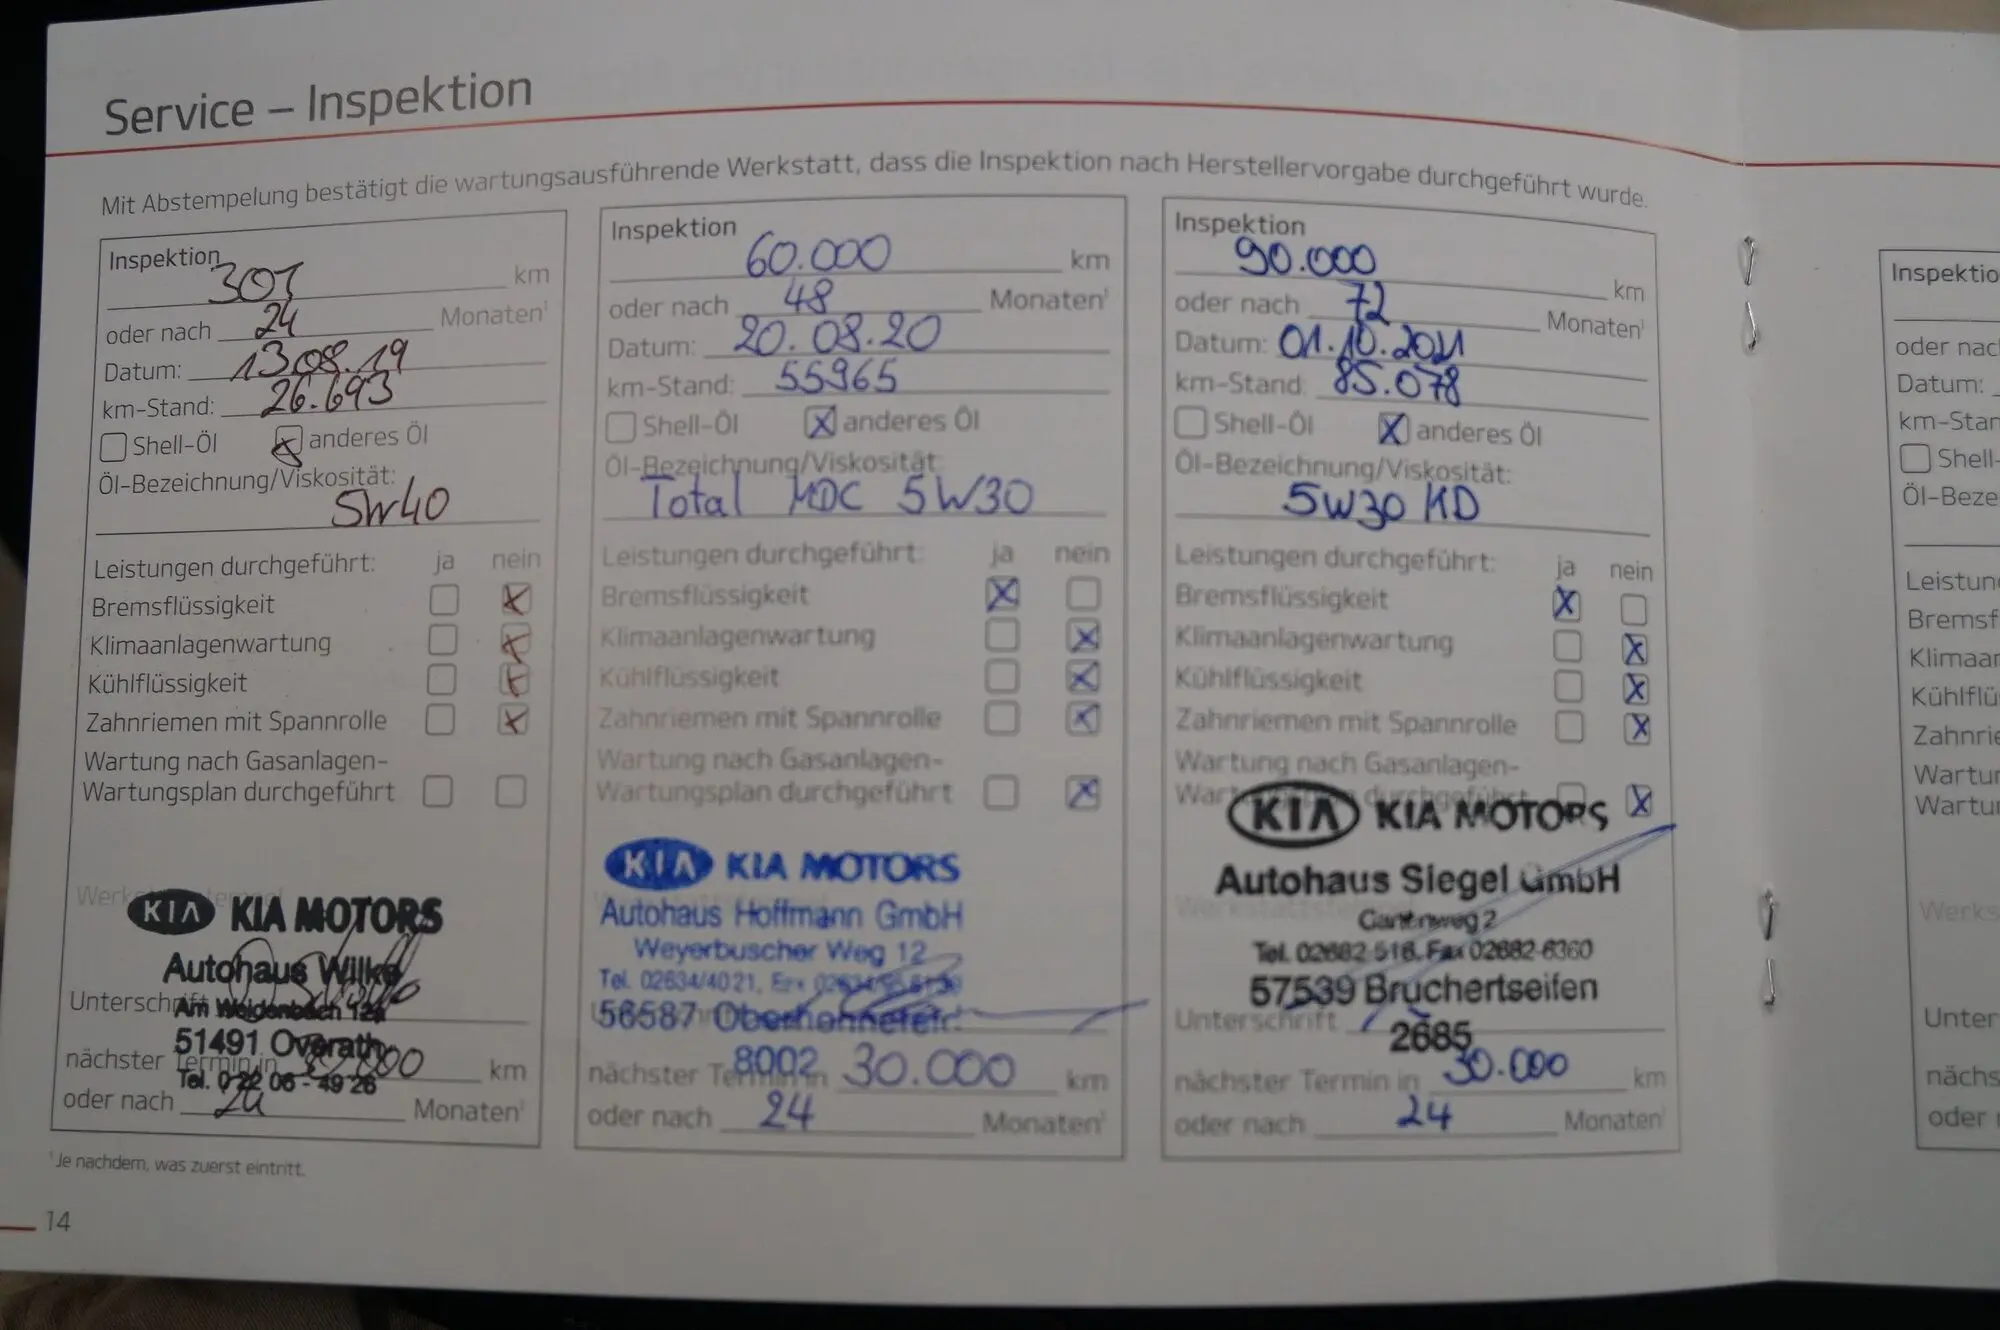 Service – Inspektion
Mit Abstempelung bestätigt die wartungsausführende Werkstatt, dass die Inspektion nach Herstellervorgabe durchgeführt wurde.
Inspektion
30T km
oder nach 24 Monaten¹
Datum: 13.08.19
km-Stand: 26.693
Shell-Öl anderes Öl
Öl-Bezeichnung/Viskosität:
5W40
Leistungen durchgeführt: ja nein
Bremsflüssigkeit
Klimaanlagenwartung
Kühlflüssigkeit
Zahnriemen mit Spannrolle
Wartung nach Gasanlagen-
Wartungsplan durchgeführt
KIA KIA MOTORS
Autohaus Wilke
Unterschrift
51491 Overath
nächster Termin in km
Tel. 0 22 06 - 49 26
oder nach 24 Monaten¹
Inspektion
60.000 km
oder nach 48 Monaten¹
Datum: 20.08.20
km-Stand: 55965
Shell-Öl anderes Öl
Öl-Bezeichnung/Viskosität:
Total 5W30
Leistungen durchgeführt: ja nein
Bremsflüssigkeit
Klimaanlagenwartung
Kühlflüssigkeit
Zahnriemen mit Spannrolle
Wartung nach Gasanlagen-
Wartungsplan durchgeführt
KIA KIA MOTORS
Autohaus Hoffmann GmbH
Weyerbuscher Weg 12
Tel. 02634/4021, Fax
56587
8002
nächster Termin in 30.000 km
oder nach 24 Monaten¹
Inspektion
90.000 km
oder nach 72 Monaten¹
Datum: 01.10.2021
km-Stand: 85.078
Shell-Öl anderes Öl
Öl-Bezeichnung/Viskosität:
5W30 HD
Leistungen durchgeführt: ja nein
Bremsflüssigkeit
Klimaanlagenwartung
Kühlflüssigkeit
Zahnriemen mit Spannrolle
Wartung nach Gasanlagen-
durchgeführt
KIA KIA MOTORS
Autohaus Siegel GmbH
Werkstattstempel
Tel. 02682-516, Fax 02682-6360
57539 Bruchertseifen
Unterschrift
2685
nächster Termin in 30.000 km
oder nach 24 Monaten¹
¹Je nachdem, was zuerst eintritt.
14
Inspektio
oder nac
Datum:
km-Star
Shell-
Öl-Beze
Leistun
Bremsf
Klimaar
Kühlflü
Zahnrie
Wartur
Wartu
Werks
Unter
nächs
oder